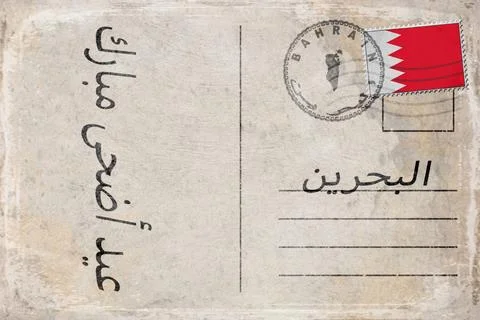 عيد أضحى مبارك
BAHRAIN
البحرين